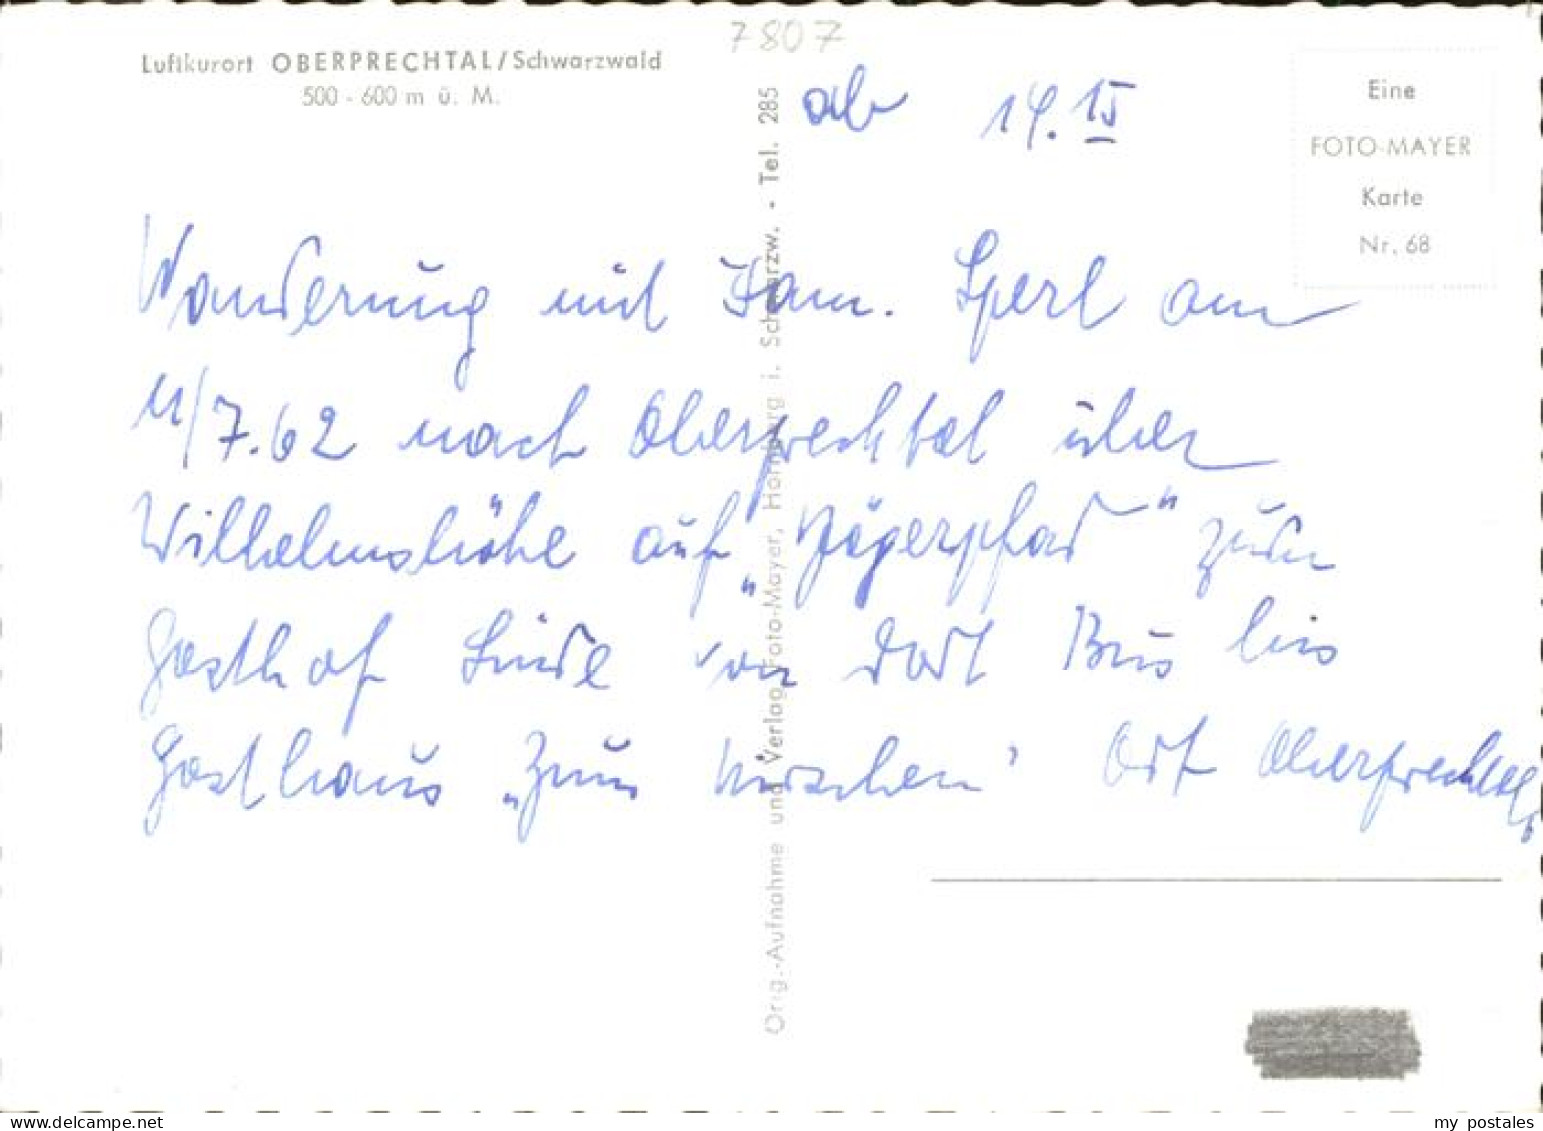 7807
Luftkurort OBERPRECHTAL/Schwarzwald
500 - 600 m ü. M.
ab 14.15
Eine
FOTO-MAYER
Karte
Nr. 68
Wanderung mit Fam. Sperl am
11/7.62 nach Oberprechtal über
Wilhelmshöhe auf „Jägerpfad" zum
Gasthof Linde von dort Bus bis
Gasthaus „Zum Hirschen" Ort Oberprechtal
Orig.-Aufnahme und Verlag Foto-Mayer, Hornberg i. Schwarzw. - Tel. 285
my postales